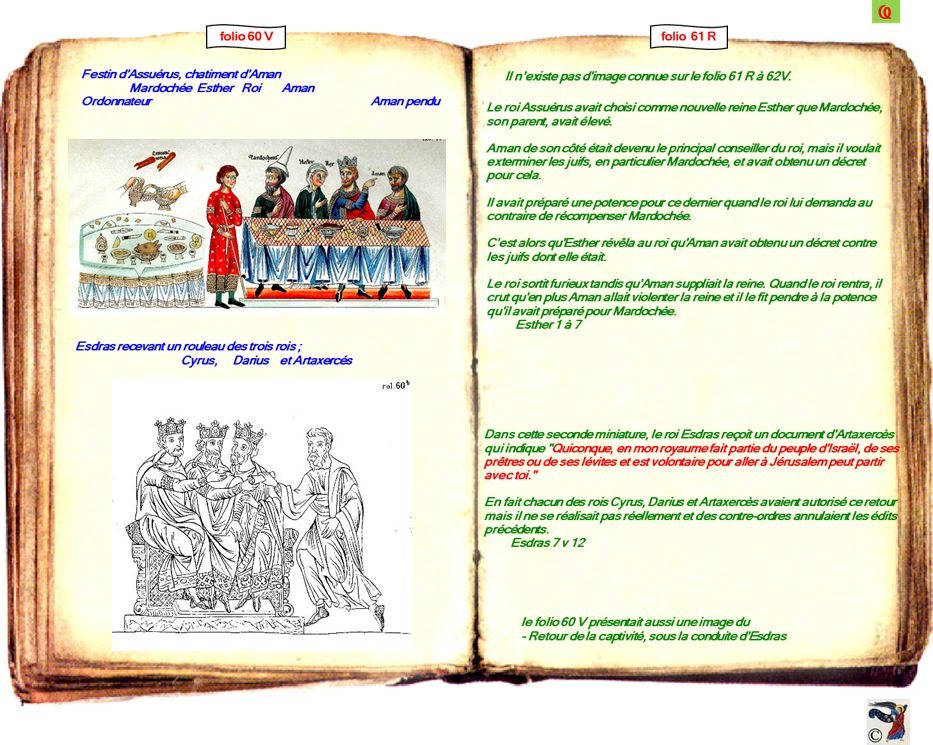 folio 60 V
Festin d'Assuérus, chatiment d'Aman
Mardochée Esther Roi Aman
Ordonnateur Aman pendu
Mardocheus
Hester
Aman
Esdras recevant un rouleau des trois rois ;
Cyrus, Darius et Artaxercés
fol. 60b
folio 61 R
Il n'existe pas d'image connue sur le folio 61 R à 62V.
Le roi Assuérus avait choisi comme nouvelle reine Esther que Mardochée,
son parent, avait élevé.
Aman de son côté était devenu le principal conseiller du roi, mais il voulait
exterminer les juifs, en particulier Mardochée, et avait obtenu un décret
pour cela.
Il avait préparé une potence pour ce dernier quand le roi lui demanda au
contraire de récompenser Mardochée.
C'est alors qu'Esther révéla au roi qu'Aman avait obtenu un décret contre
les juifs dont elle était.
Le roi sortit furieux tandis qu'Aman suppliait la reine. Quand le roi rentra, il
crut qu'en plus Aman allait violenter la reine et il le fit pendre à la potence
qu'il avait préparé pour Mardochée.
Esther 1 à 7
Dans cette seconde miniature, le roi Esdras reçoit un document d'Artaxercès
qui indique "Quiconque, en mon royaume fait partie du peuple d'Israël, de ses
prêtres ou de ses lévites et est volontaire pour aller à Jérusalem peut partir
avec toi."
En fait chacun des rois Cyrus, Darius et Artaxercès avaient autorisé ce retour
mais il ne se réalisait pas réellement et des contre-ordres annulaient les édits
précédents.
Esdras 7 v 12
le folio 60 V présentait aussi une image du
- Retour de la captivité, sous la conduite d'Esdras
©